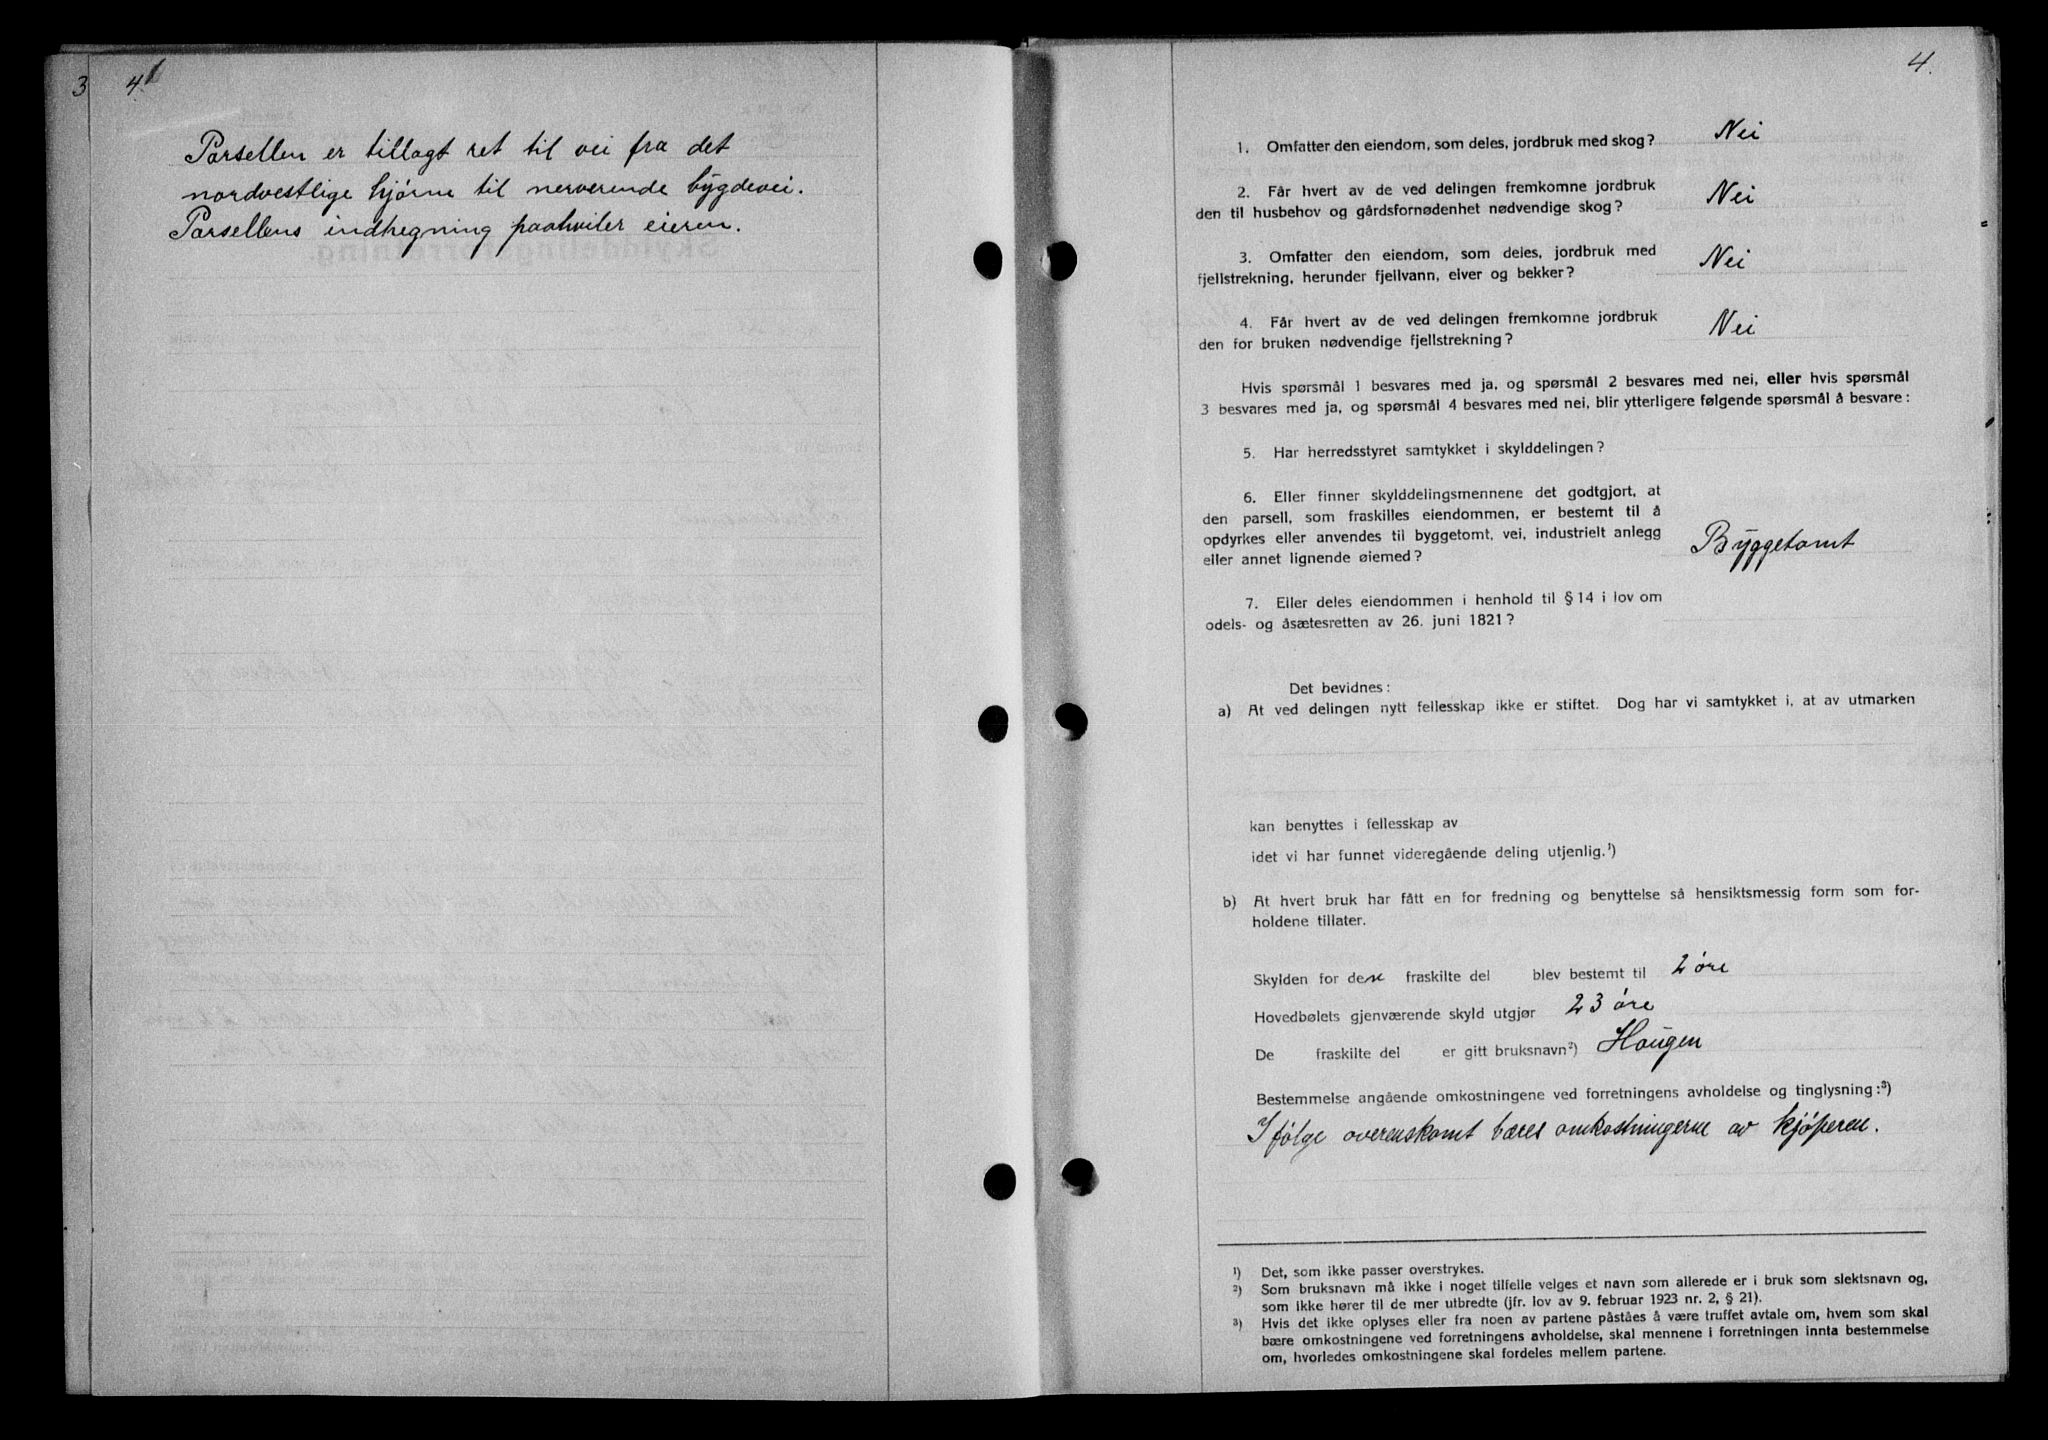 3 4.
Parsellen er tillagt ret til vei fra det
nordvestlige hjørne til nerverende bygdevei.
Parsellens indhegning paahviler eieren.
4.
1. Omfatter den eiendom, som deles, jordbruk med skog? Nei
2. Får hvert av de ved delingen fremkomne jordbruk
den til husbehov og gårdsfornødenhet nødvendige skog? Nei
3. Omfatter den eiendom, som deles, jordbruk med
fjellstrekning, herunder fjellvann, elver og bekker? Nei
4. Får hvert av de ved delingen fremkomne jordbruk
den for bruken nødvendige fjellstrekning? Nei
Hvis spørsmål 1 besvares med ja, og spørsmål 2 besvares med nei, eller hvis spørsmål
3 besvares med ja, og spørsmål 4 besvares med nei, blir ytterligere følgende spørsmål å besvare:
5. Har herredsstyret samtykket i skylddelingen?
6. Eller finner skylddelingsmennene det godtgjort, at
den parsell, som fraskilles eiendommen, er bestemt til å
opdyrkes eller anvendes til byggetomt, vei, industrielt anlegg
eller annet lignende øiemed? Byggetomt
7. Eller deles eiendommen i henhold til § 14 i lov om
odels- og åsætesretten av 26. juni 1821?
Det bevidnes:
a) At ved delingen nytt fellesskap ikke er stiftet. Dog har vi samtykket i, at av utmarken
kan benyttes i fellesskap av
idet vi har funnet videregående deling utjenlig.¹)
b) At hvert bruk har fått en for fredning og benyttelse så hensiktsmessig form som for-
holdene tillater.
Skylden for den fraskilte del blev bestemt til 2 øre
Hovedbølets gjenværende skyld utgjør 23 øre
De fraskilte del er gitt bruksnavn²) Haugen
Bestemmelse angående omkostningene ved forretningens avholdelse og tinglysning:³)
I følge overenskomt bæres omkostningerne av kjøperen.
¹) Det, som ikke passer overstrykes.
²) Som bruksnavn må ikke i noget tilfelle velges et navn som allerede er i bruk som slektsnavn og,
som ikke hører til de mer utbredte (jfr. lov av 9. februar 1923 nr. 2, § 21).
³) Hvis det ikke oplyses eller fra noen av partene påstås å være truffet avtale om, hvem som skal
bære omkostningene ved forretningens avholdelse, skal mennene i forretningen innta bestemmelse
om, hvorledes omkostningene skal fordeles mellem partene.